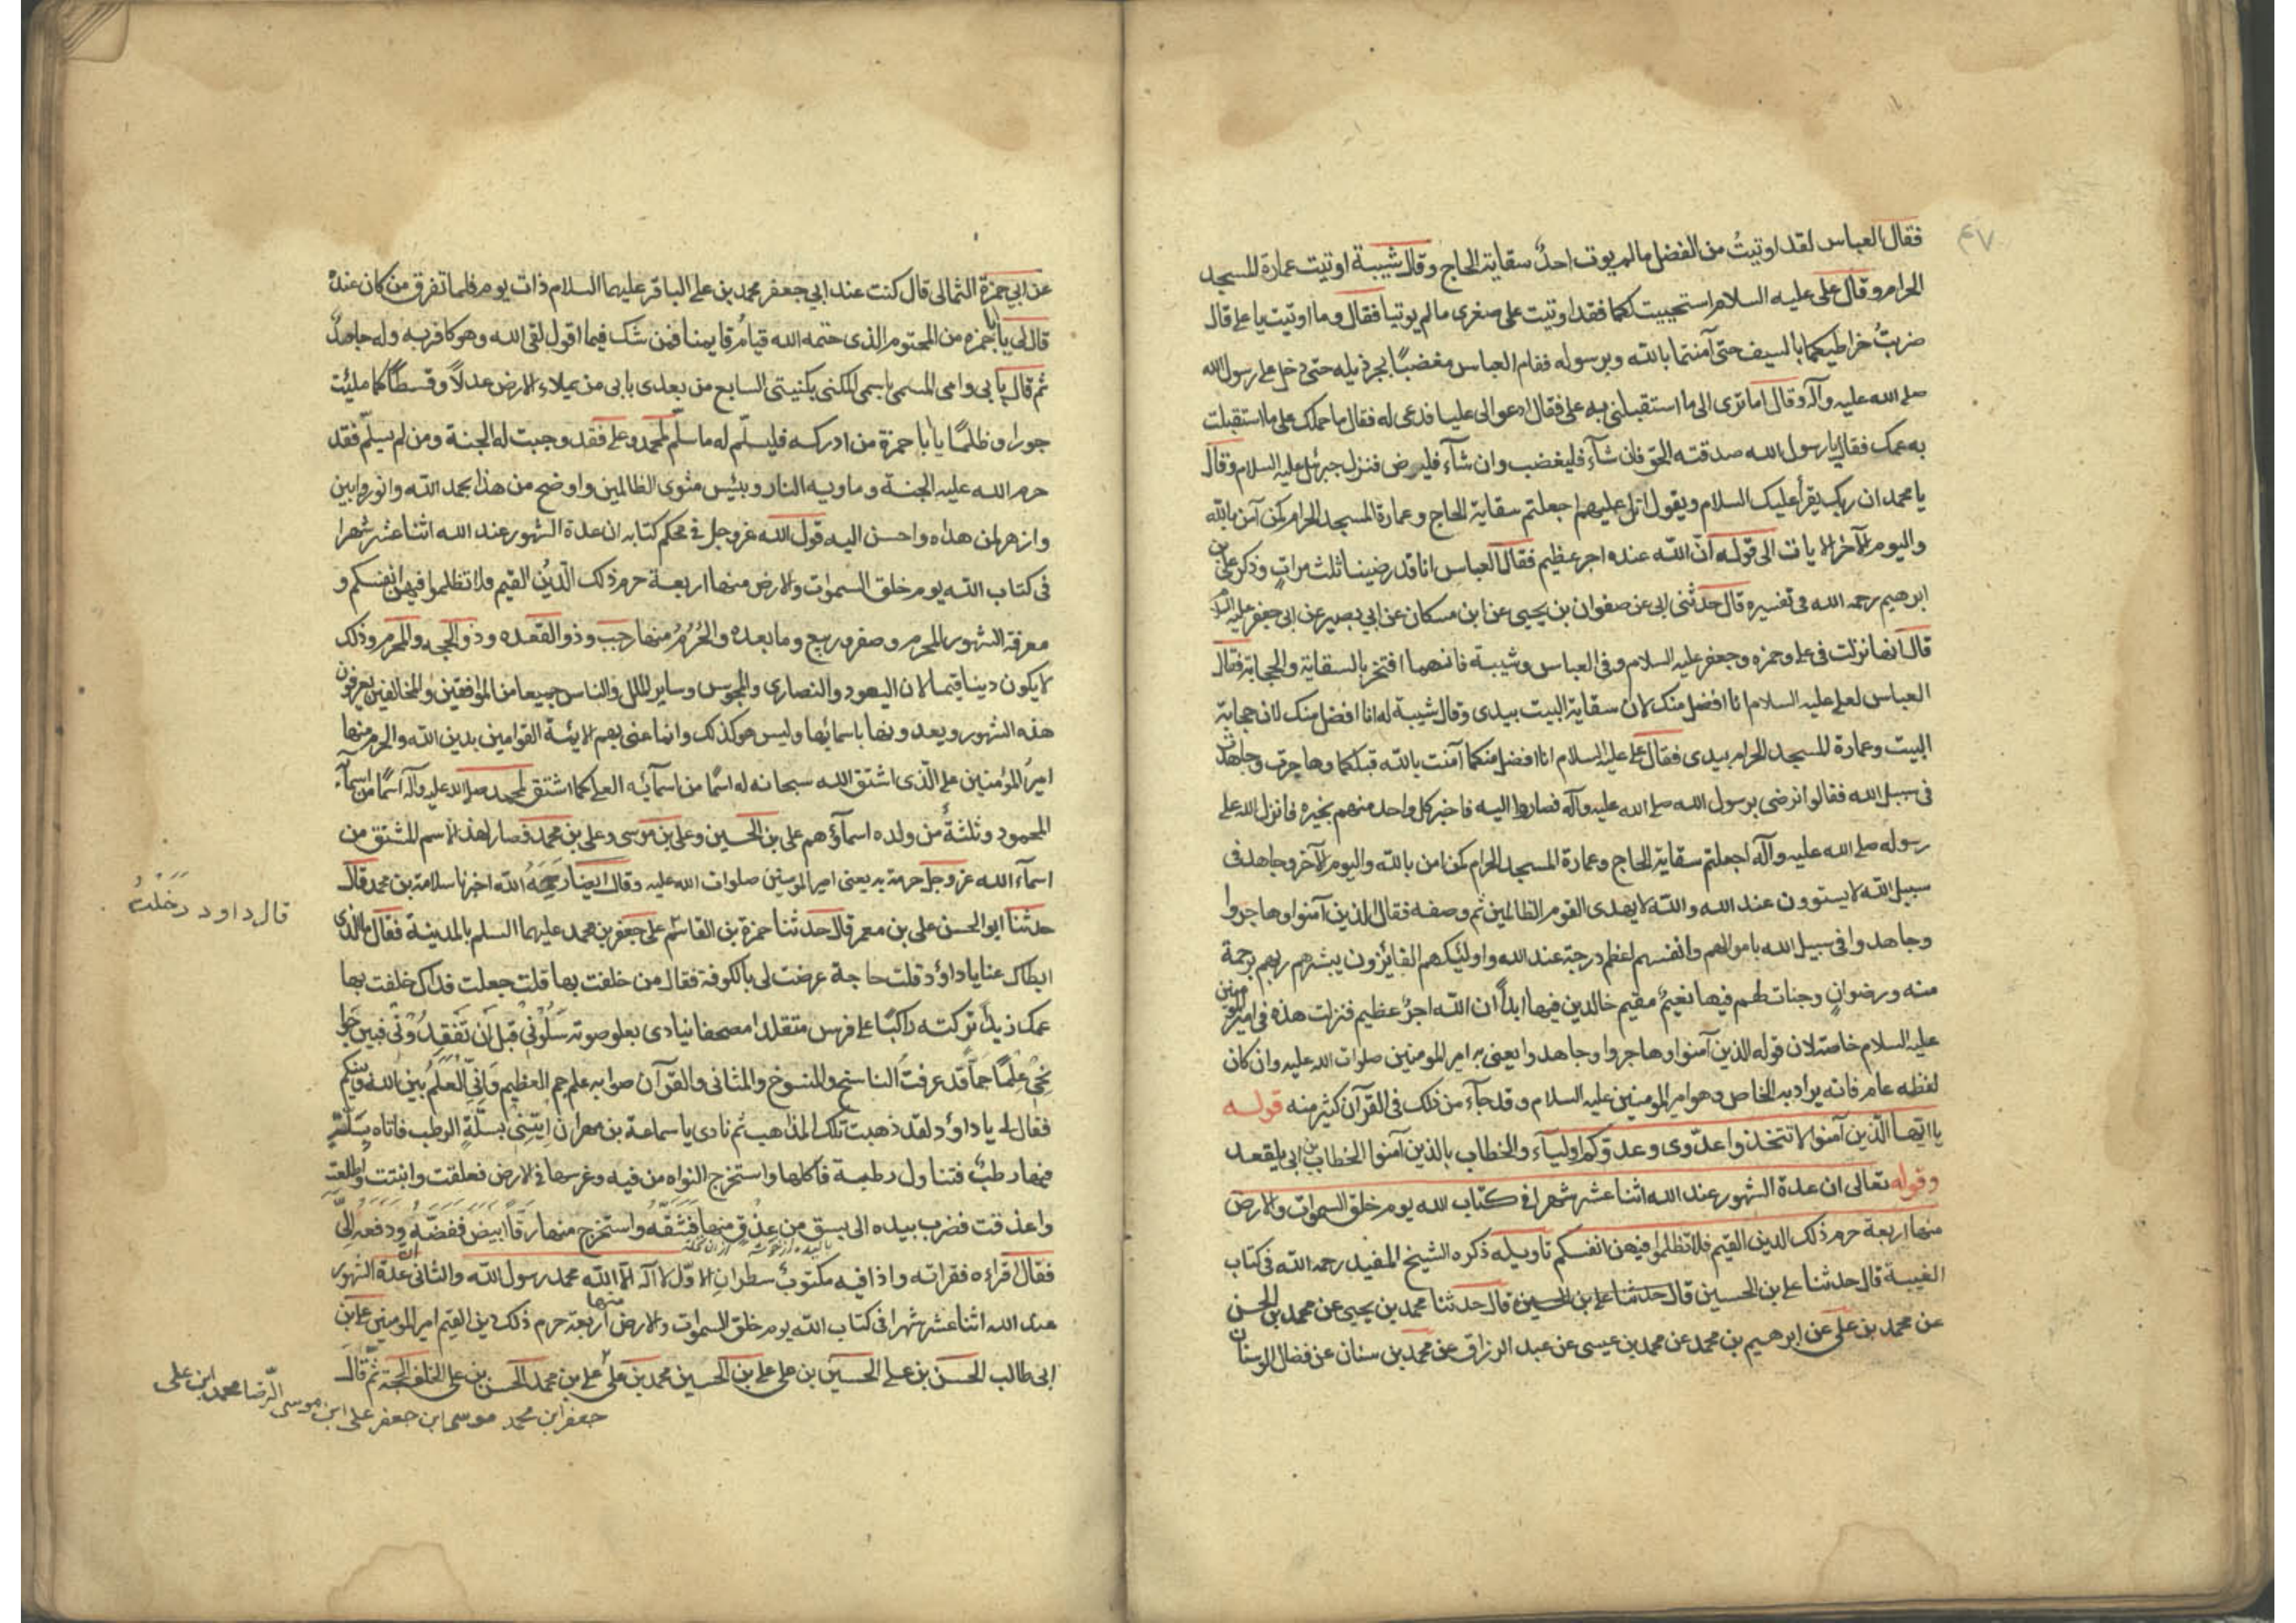 ٤٧
فقال العباس لقد اوتيتُ من الفضل ما لم يوت احدٌ سقاية الحاج وقال شيبة اوتيت عمارة المسجد
الحرام وقال علی علیه السلام استحييت لكما فقد اوتيت على صغرى ما لم يوتيا فقال وما اوتيت يا على قال
ضربتُ خراطيمكما بالسيف حتى آمنتما بالله وبرسوله فقام العباس مغضبًا يجر ذيله حتى دخل على رسول الله
صلى الله عليه وآله وقال اما ترى الى ما استقبلنى به على فقال ادعوا لى عليا فدعى له فقال ما حملك على ما استقبلت
به عمك فقال يا رسول الله صدقته الحق فان شآء فليغضب وان شآء فليرض فنزل جبرئيل عليه السلام وقال
يا محمد ان ربك يقرأ عليك السلام ويقول اتل عليهم اجعلتم سقاية الحاج وعمارة المسجد الحرام كمن آمن بالله
واليوم الآخر الايات الى قوله انّ الله عنده اجر عظيم فقال العباس انا قد رضينا ثلث مراتٍ وذكر على بن
ابرهيم رحمه الله فى تفسيره قال حدثنى ابى عن صفوان بن يحيى عن ابن مسكان عن ابي بصير عن ابى جعفر عليه السلام
قال انها نزلت فى على وحمزه وجعفر عليه السلام وفى العباس وشيبة فانهما افتخر بالسقاية والحجابة فقال
العباس لعلى عليه السلام انا افضل منك لان سقاية البيت بيدى وقال شيبة له انا افضل منك لان حجابة
البيت وعمارة المسجد الحرام بيدى فقال على عليه السلام انا افضل منكما آمنت بالله قبلكما وهاجرت وجاهدت
فى سبيل الله فقالوا نرضى برسول الله صلى الله عليه وآله فصاروا اليه فاخبر كل واحد منهم بخيره فانزل الله على
رسوله صلى الله عليه وآله اجعلتم سقاية الحاج وعمارة المسجد الحرام كمن امن بالله واليوم الآخر وجاهد فى
سبيل الله لا يستوون عند الله والله لا يهدى القوم الظالمين ثم وصفه فقال الذين آمنوا وهاجروا
وجاهدوا فى سبيل الله باموالهم وانفسهم اعظم درجة عند الله واولئك هم الفائزون يبشرهم ربهم برحمة
منه ورضوانٍ وجنات لهم فيها نعيمٌ مقيم خالدين فيها ابداً ان الله اجرٌ عظيم فنزلت هذه فى امير المؤمنين
عليه السلام خاصة لان قوله الذين آمنوا وهاجروا وجاهدوا يعنى به امير المومنين صلوات الله عليه وان كان
لفظه عام فانه يراد به الخاص وهو امير المومنين عليه السلام وقد جآء من ذلك فى القرآن كثير منه قوله
يا ايّها الّذين آمنوا لا تتخذوا عدّوى وعدوّكم اوليآء والخطاب بالذين آمنوا الخطاب بن ابى بلقعد
وقوله تعالى ان عدة الشهور عند الله اثنا عشر شهرا فى كتاب الله يوم خلق السموات والارض
منها اربعة حرم ذلك الدين القيم فلا تظلموا فيهن انفسكم تاويله ذكره الشيخ المفيد رحمه الله فى كتاب
الغيبة قال حدثنا على بن الحسين قال حدثنا على بن الحسين قال حدثنا محمد بن يحيى عن محمد بن الحسن
عن محمد بن على عن ابرهيم بن محمد عن محمد بن عيسى عن عبد الرزاق عن محمد بن سنان عن فضال الوسنان
عن ابى حمزة الثمالى قال كنت عند ابي جعفر محمد بن على الباقر عليهما السلام ذات يوم فلما تفرق من كان عنده
قال لى يا ابا حمزه من المحتوم الذى حتمه الله قيام قايمنا فمن شك فيما اقول لقى الله وهو كافر به وله جاحدٌ
ثم قال بابى وامى المسمى باسمى المكنى بكنيتى السابع من بعدى بابى من يملاء الارض عدلًا وقسطًا كما ملئت
جورا وظلمًا يا ابا حمزة من ادركه فليسلّم له ما سلّم لمحمد وعلى فقد وجبت له الجنة ومن لم يسلّم فقد
حرم الله عليه الجنة وماويه النار وبئس مثوى الظالمين واوضح من هذا بحمد الله وانور وابين
وازهر لمن هداه واحسن اليه قول الله عزوجل فى محكم كتابه ان عدة الشهور عند الله اثنا عشر شهرا
فى كتاب الله يوم خلق السموات والارض منها اربعة حرم ذلك الّدينُ القيم فلا تظلموا فيهن انفسكم و
معرفة الشهور المحرم وصفر وربيع وما بعده والحُرُمُ منها رجب وذو القعده وذو الحجه والمحرم وذلك
لا يكون دينا قيما لان اليهود والنصارى والمجوس وساير الملل والناس جميعا من الموافقين والمخالفين يعرفون
هذه الشهور ويعدونها باسمائها وليس هو كذلك وانما عنى بهم الائمة القوامين بدين الله والحرم منها
اميرُ المؤمنين على الّذى اشتق الله سبحانه له اسمًا من اسمآئه العلى كما اشتق لمحمد صلى الله عليه وآله اسمًا من اسمآء
المحمود وثلثةٌ من ولده اسمآؤهم على بن الحسين وعلى بن موسى وعلى بن محمد فصار لهذا الاسم المشتق من
اسمآء الله عزوجل حرمة به يعنى امير المومنين صلوات الله عليه وقال ايضا رَحِمَهُ الله اخبرنا سلامة بن محمد قال
حدثنا ابو الحسن على بن معمر قال حدثنا حمزة بن القاسم على جعفر بن محمد عليهما السلم بالمدينة فقال ما الذى
قال داود دَخَلْتُ
ابطاك عنا يا داؤد قلت حاجة عرضت لى بالكوفة فقال من خلفت بها قلت جعلت فداك خلفت بها
عمك زيداً تركته راكبًا على فرس متقلدا مصحفا ينادى بعلو صوته سَلُونى قبل اَن تَفقِدُونى فبين جوا
نحى عِلْمًا جمآ قد عرفتُ الناسخ والمنسوخ والمثانى والقرآن صوابه علم جم العظيم وَاِنّى العَلَمُ بين الله وبينكم
فقال لى يا داؤد لقد ذهبت تلك المذاهب ثم نادى يا سماعة بن مهران اِيتِنى بسلّةِ الرطب فاتاه بسلّةٍ
فيها رطبٌ فتناول رطبة فاكلها واستخرج النواه من فيه وغرسها فى الارض فعلقت وانبتت واطلعت
واعذقت فضرب بيده الى بسق من عذق منها فَشَقّهُ واستخرج منها رقًا ابيض ففضّهُ ودفعه الىّ
فقال اقراءه فقراته واذا فيه مكتوبٌ سطران الاوّل لا اله الّا الله محمد رسول الله والثانى ان عدة الشهور
عند الله اثنا عشر شهرا فى كتاب الله يوم خلق السموات والارض منها اربعة حرم ذلك دين القيم امير المومنين على بن
ابى طالب الحسن بن على الحسين بن على على بن الحسين محمد بن على على بن محمد الحسن بن على الخلف الحجة ثمّ قال
جعفر ابن محمد موسى ابن جعفر على ابن موسى الرّضا محمد ابن على